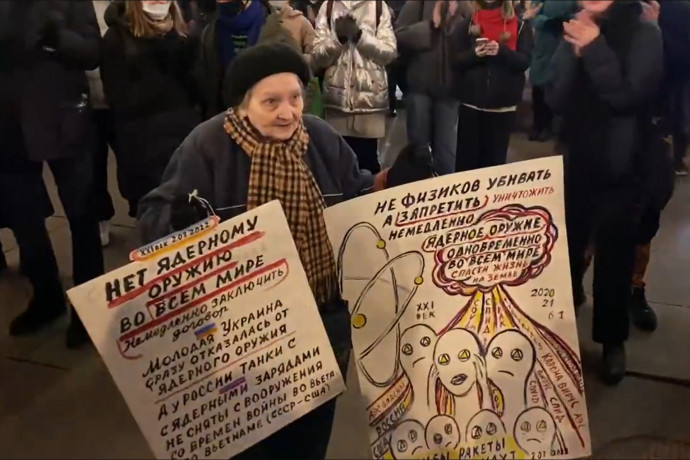 XXI ВЕК 2017 2022
НЕТ ЯДЕРНОМУ
ОРУЖИЮ
ВО ВСЕМ МИРЕ
НЕМЕДЛЕННО ЗАКЛЮЧИТЬ
ДОГОВОР
МОЛОДАЯ УКРАИНА
СРАЗУ ОТКАЗАЛАСЬ ОТ
ЯДЕРНОГО ОРУЖИЯ
А У РОССИИ ТАНКИ С
ЯДЕРНЫМИ ЗАРЯДАМИ
НЕ СНЯТЫ С ВООРУЖЕНИЯ
СО ВРЕМЕН ВОЙНЫ ВО ВЬЕТА
ВО ВЬЕТНАМЕ (СССР-США)
НЕ ФИЗИКОВ УБИВАТЬ
А ЗАПРЕТИТЬ УНИЧТОЖИТЬ
НЕМЕДЛЕННО
ЯДЕРНОЕ ОРУЖИЕ
ОДНОВРЕМЕННО
ВО ВСЕМ МИРЕ
СПАСТИ ЖИЗНЬ
НА ЗЕМЛЕ
XXI
ВЕК
2020
21
РОССИЯ
США
РАКЕТЫ